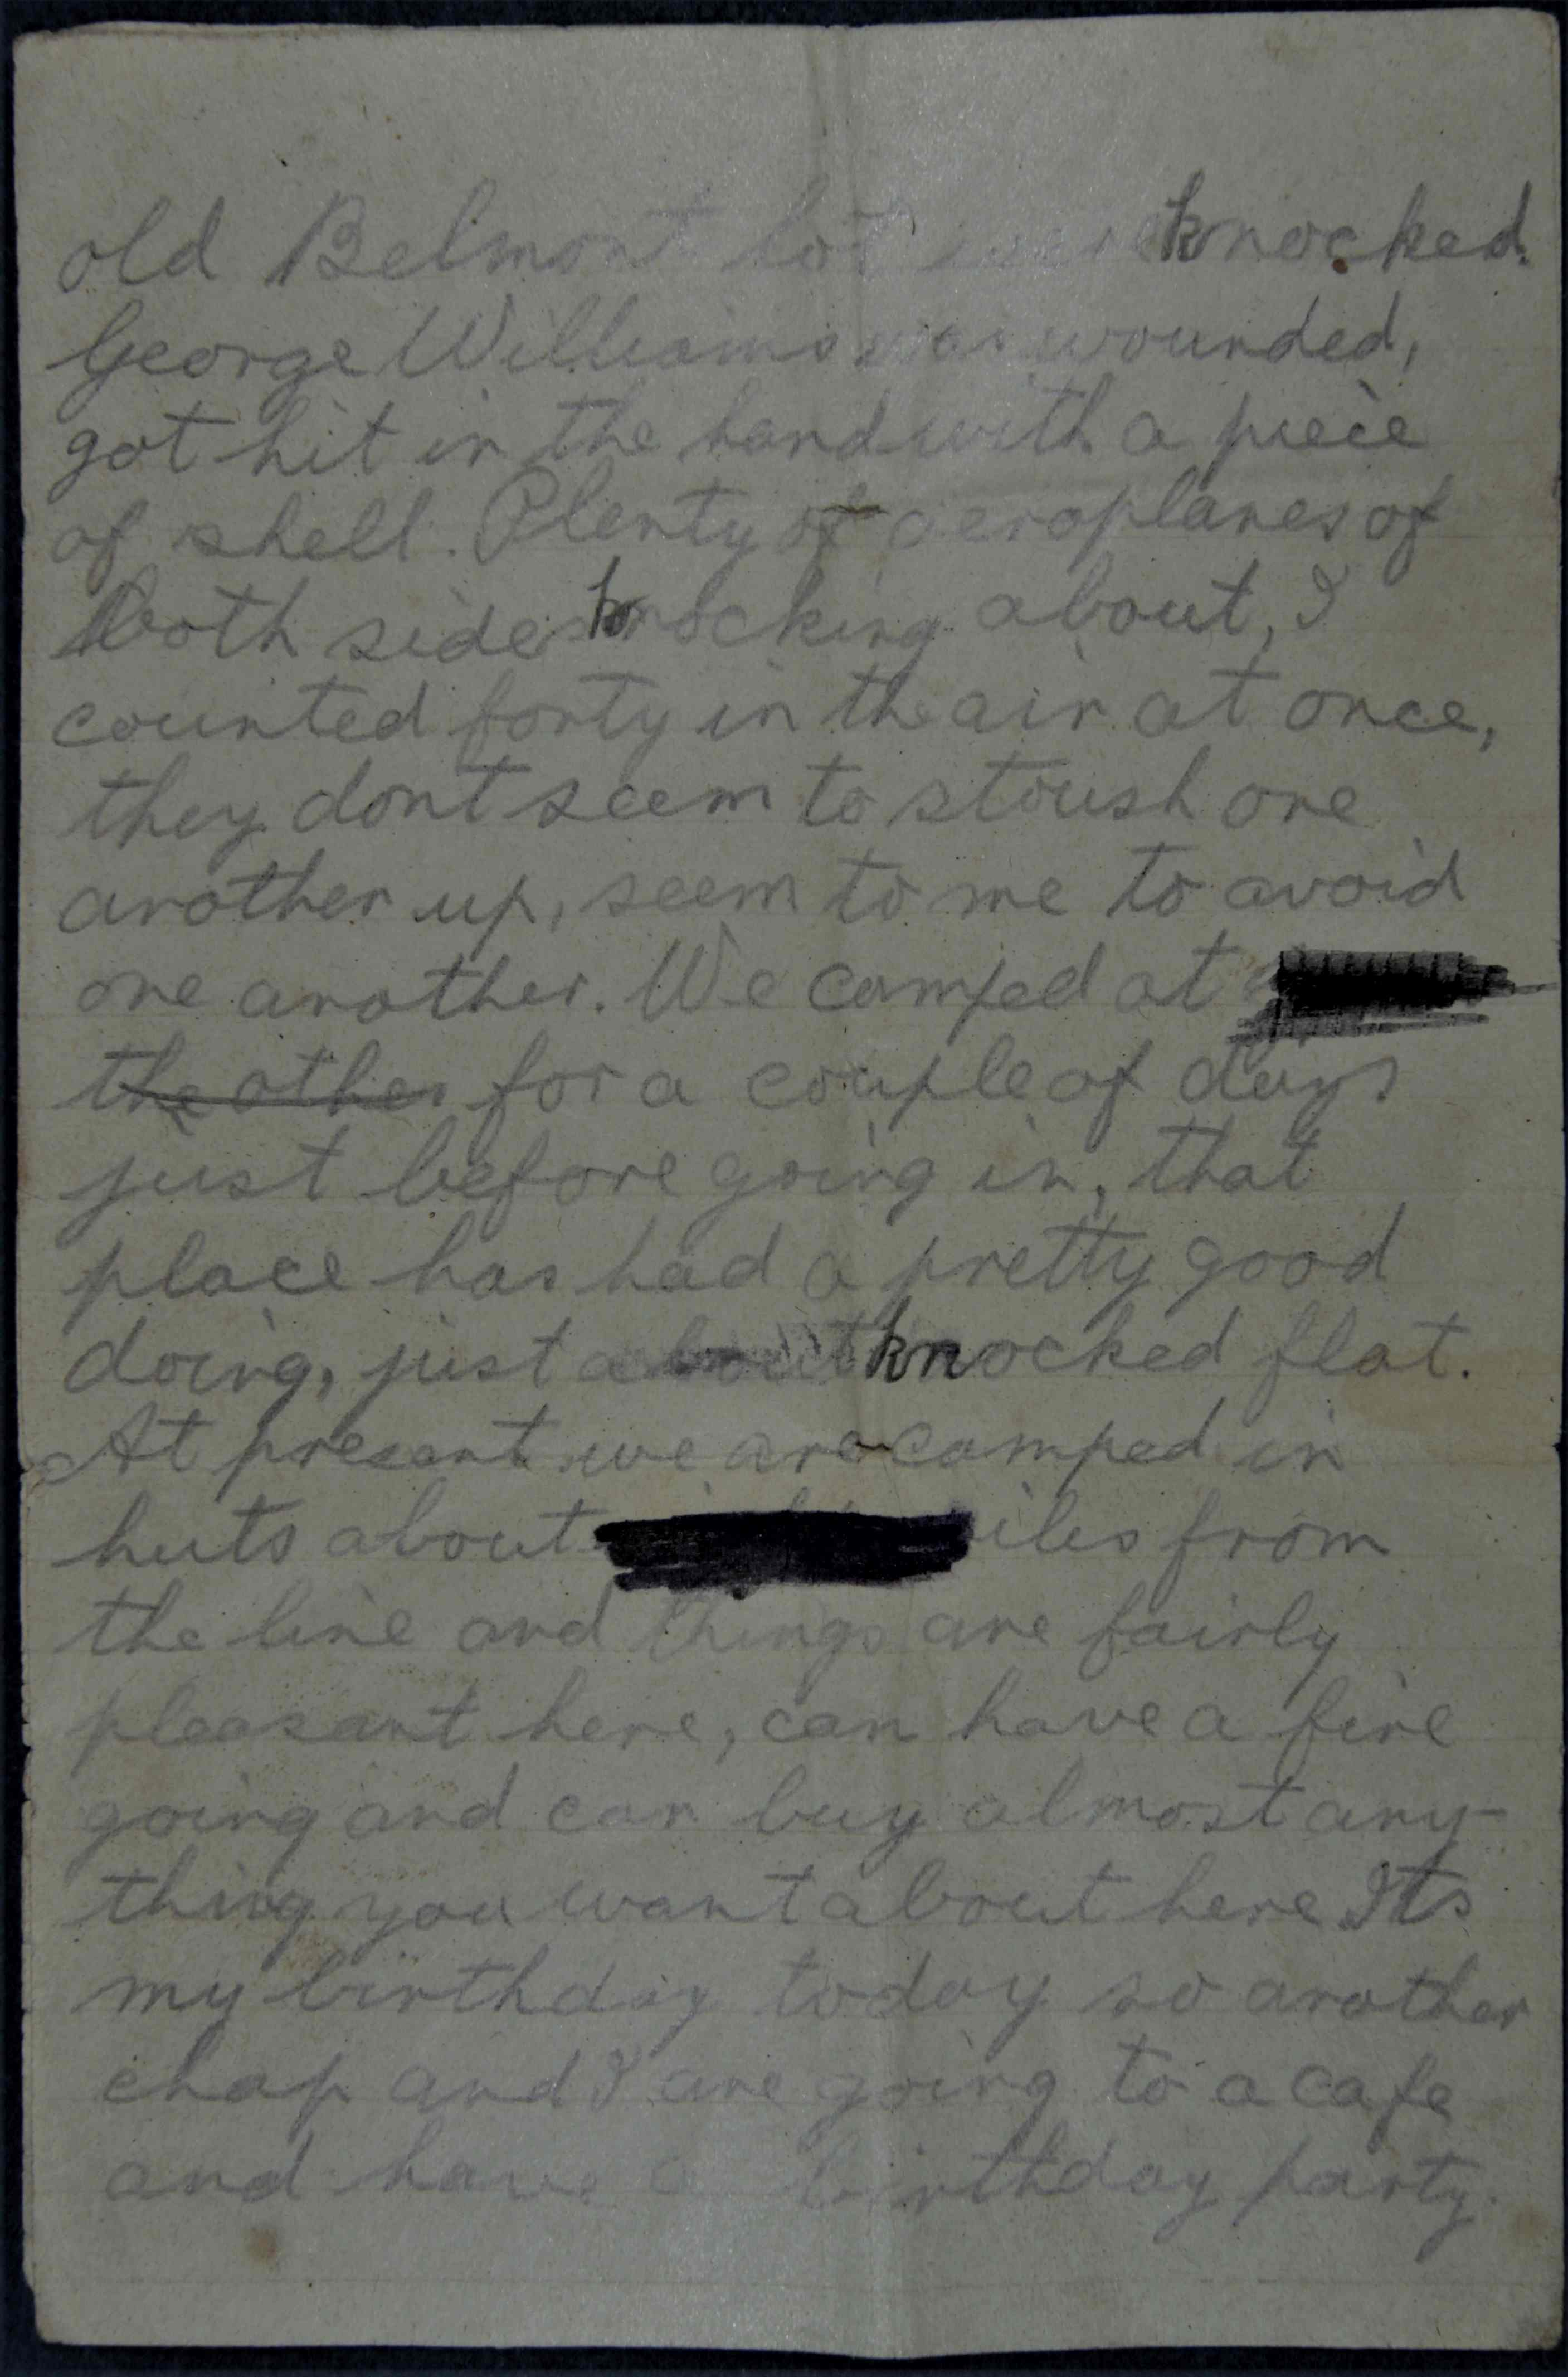 old Belmont lot were knocked.
George Williams was wounded,
got hit in the hand with a piece
of shell. Plenty of aeroplanes of
both sides knocking about, I
counted forty in the air at once,
they dont seem to stoush one
another up, seem to me to avoid
one another. We camped at
the other for a couple of days
just before going in, that
place has had a pretty good
doing, just about knocked flat.
At present we are camped in
huts about iles from
the line and things are fairly
pleasant here, can have a fire
going and can buy almost any-
thing you want about here Its
my birthday today so another
chap and I are going to a cafe
and have a birthday party.